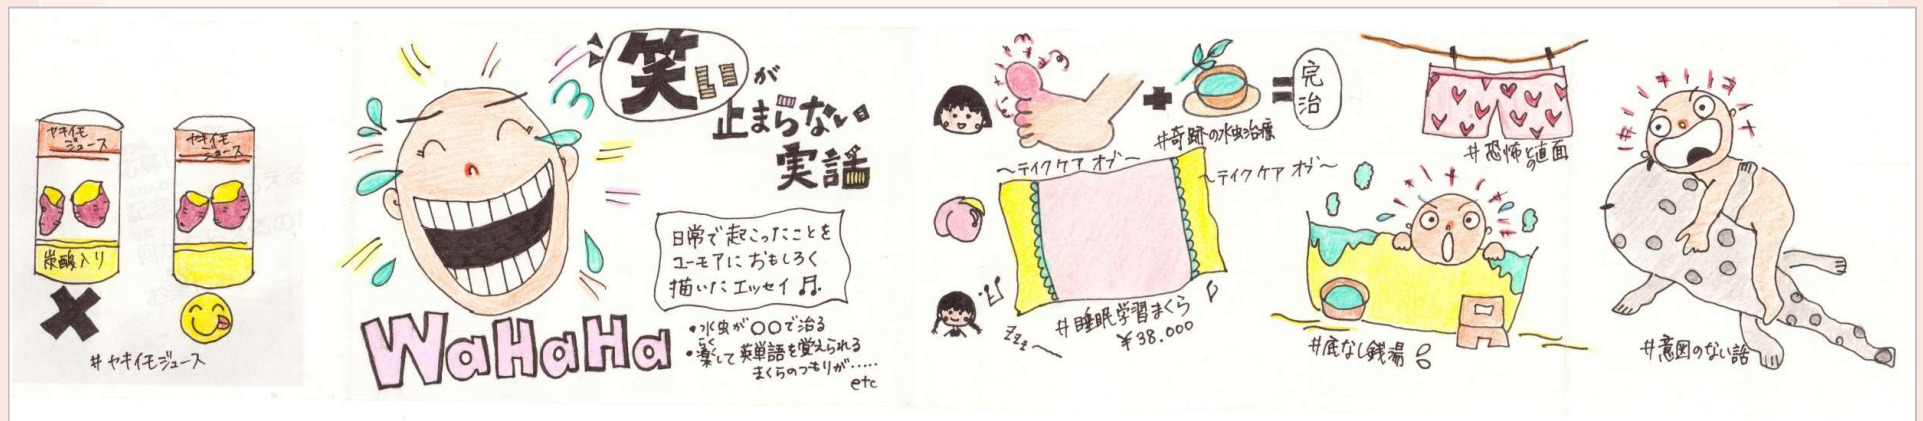 ヤキイモ
ジュース
ヤキイモ
ジュース
炭酸入り
#ヤキイモジュース
笑いが
止まらない
実話
日常で起こったことを
ユーモアにおもしろく
描いたエッセイ♬.
WaHaHa
•水虫が〇〇で治る
•楽して英単語を覚えられる
らく
まくらのつもりが.....
etc
+
=
完治
#奇跡の水虫治療
〜テイクケア オブ〜
〜テイクケア オブ〜
zzz〜
#睡眠学習まくら
¥38.000
#恐怖との直面
#底なし銭湯
#意図のない話